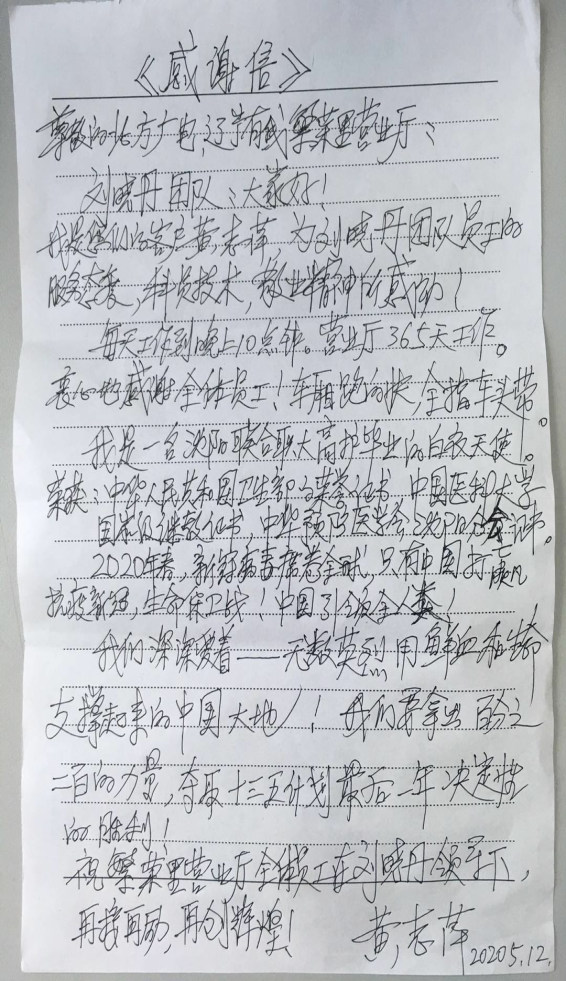 《感谢信》
尊敬的北方广电辽宁有线繁荣里营业厅：
刘晓丹团队：大家好！
我是您们的客户黄志萍，为刘晓丹团队员工的
服务态度，科员技术，敬业精神所感动！
每天工作到晚上10点钟。营业厅365天工作。
衷心地感谢全体员工！车厢跑的快，全指车头带。
我是一名沈阳联合职大高护毕业的白衣天使。
荣获：中华人民共和国卫生部荣誉证书，中国医科大学
国家级继教证书，中华预防医学会沈阳分会证书。
2020年春，新冠病毒席卷全球，只有中国打赢
抗疫新冠，生命保卫战！中国引领全人类！
我们深深爱着——无数英烈用鲜血和生命
支撑起来的中国大地！我们要拿出百分之
二百的力量，夺取十三五计划最后一年决定性
的胜利！
祝繁荣里营业厅全体员工在刘晓丹领导下，
再接再励，再创辉煌！ 黄志萍 2020.5.12.